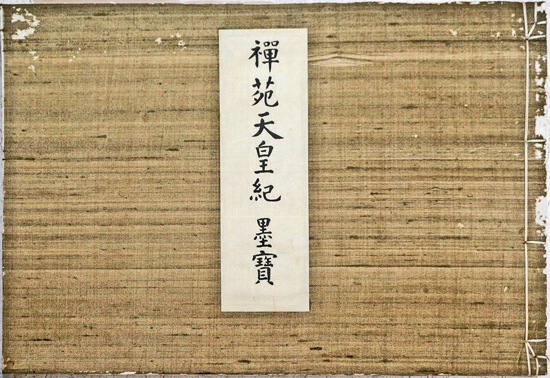 禪苑天皇紀 墨寶